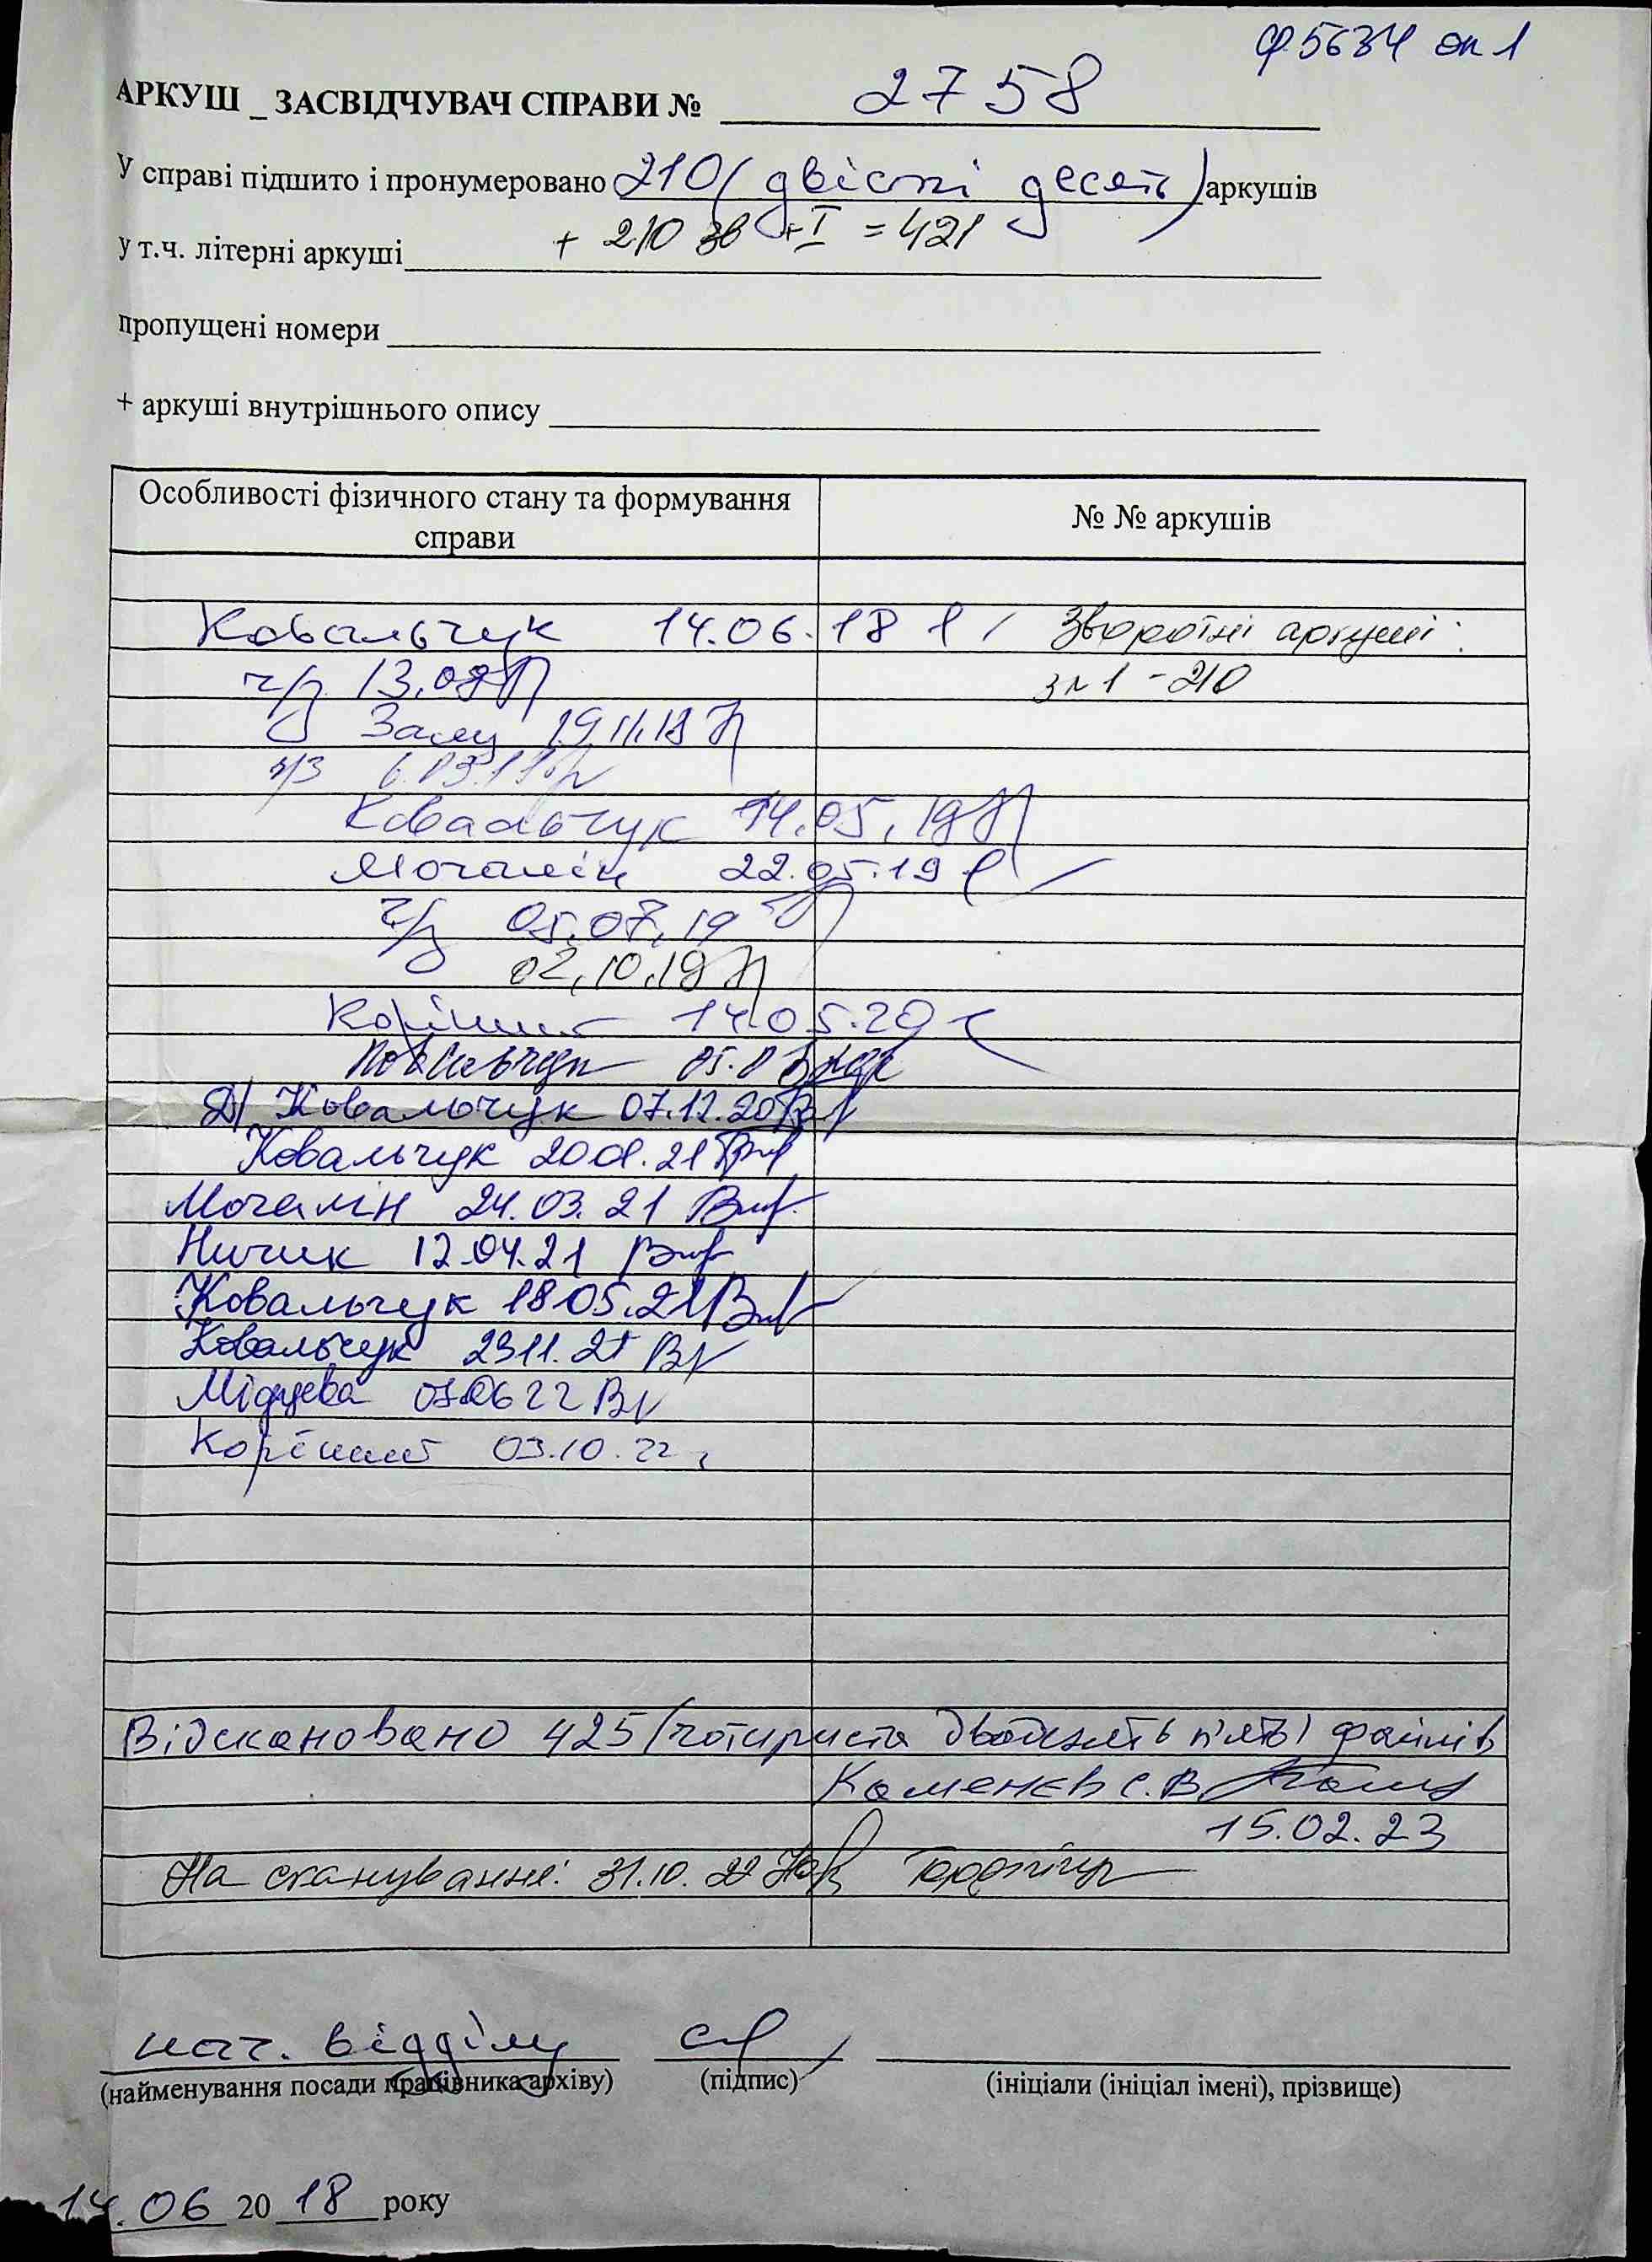 ф 5634 оп 1
АРКУШ _ ЗАСВІДЧУВАЧ СПРАВИ № 2758
У справі підшито і пронумеровано 210 (двісті десять) аркушів
у т.ч. літерні аркуші + 210 зв + I = 421
пропущені номери
+ аркуші внутрішнього опису
Особливості фізичного стану та формування справи
№ № аркушів
Ковальчук 14.06.18 Зворотні аркуші:
ч/з 13.09 з 1 - 210
19.11.18
ч/з
Ковальчук 14.05.19
Мочалін 22.05.19
ч/з 05.07.19
02.10.19
Корінний 14.05.20
Ковальчук
Ковальчук 07.12.20
Ковальчук 20.01.21
Мочалін 24.03.21
Ничик 12.04.21
Ковальчук 18.05.21
Ковальчук 23.11.21
22
Корінний 03.10.22
Відскановано 425 (чотириста двадцять п'ять) файлів
Каменєв С.В.
15.02.23
На сканування: 31.10.22
нач. відділу
(найменування посади працівника архіву) (підпис) (ініціали (ініціал імені), прізвище)
14.06 20 18 року